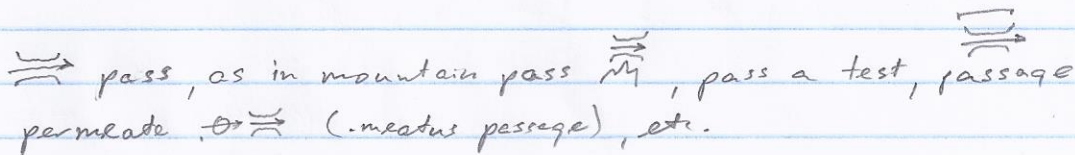 pass, as in mountain pass, pass a test, passage
permeate (.meatus passege), etc.